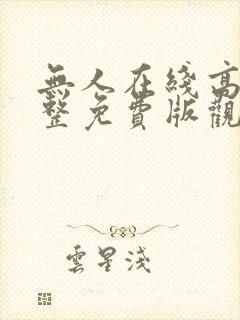 無人在綫高
整免費版觀
雲星淺